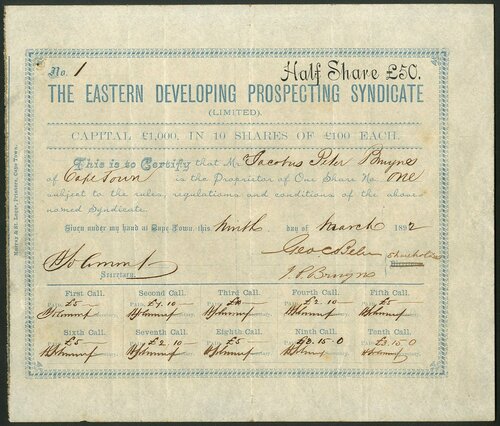 No. 1 Half Share £50.
THE EASTERN DEVELOPING PROSPECTING SYNDICATE
(LIMITED).
CAPITAL £1,000, IN 10 SHARES OF £100 EACH.
This is to Certify that Mr Jacobus Peter Bruyns
of Cape Town is the Proprietor of One Share No. one
subject to the rules, regulations and conditions of the above-
named Syndicate.
Given under my hand at Cape Town, this Ninth day of March 1892
Shareholder
Secretary. Directors.
J. P. Bruyns
First Call. Second Call. Third Call. Fourth Call. Fifth Call.
PAID £5 PAID PAID PAID £2.10 PAID £5
Secretary. Secretary. Secretary. Secretary. Secretary.
Sixth Call. Seventh Call. Eighth Call. Ninth Call. Tenth Call.
PAID £5 PAID £2.10 PAID £5 PAID PAID £3.15.0
Secretary. Secretary. Secretary. Secretary. Secretary.
Printers, Cape Town.